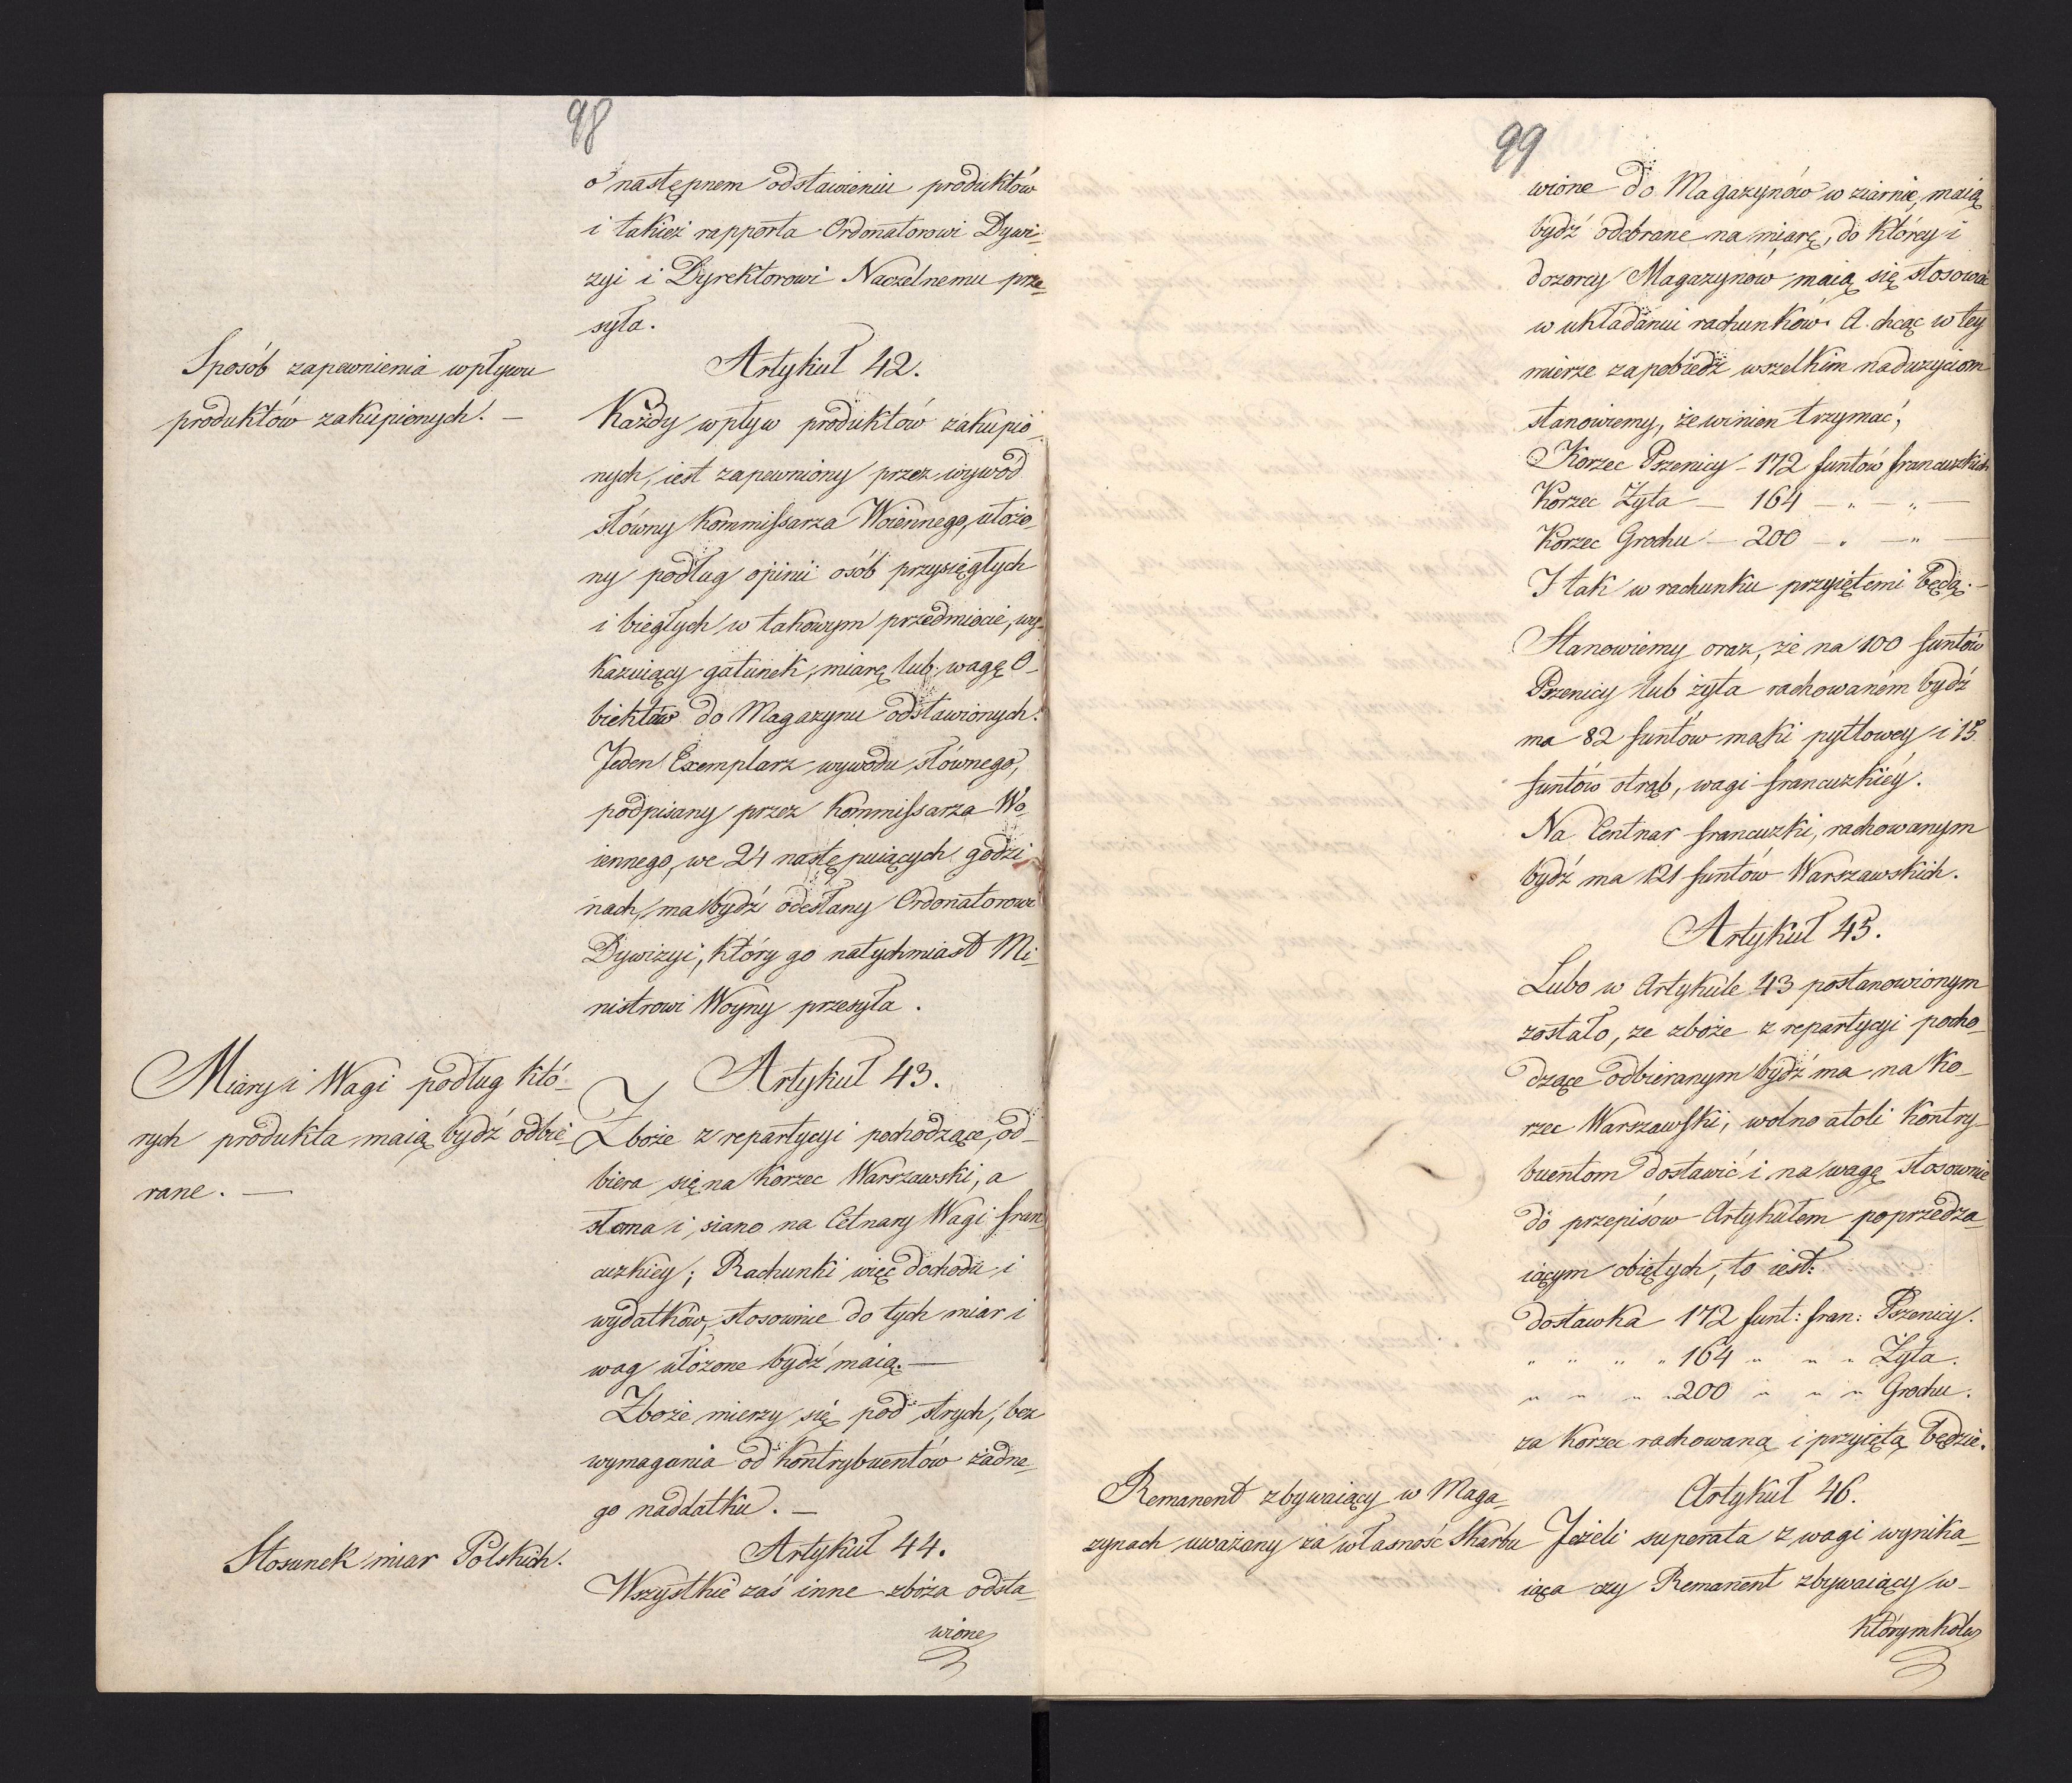 98
o następnem odstawieniu produktów
i takież rapporta Ordonatorowi Dywi-
zyi i Dyrektorowi Naczelnemu prze-
syła.
Sposób zapewnienia wpływu
produktów zakupionych. —
Artykuł 42.
Każdy wpływ produktów zakupio-
nych, iest zapewniony przez wywód
słówny Kommissarza Woiennego, ułożo-
ny podług opinii osób przysięgłych
i biegłych w takowym przedmiocie, wy-
kazuiący gatunek, miarę lub wagę O-
biektów do Magazynu odstawionych.
Jeden Exemplarz wywodu słównego,
podpisany przez Kommissarza Wo-
iennego, we 24 następuiących godzi-
nach, ma bydź odesłany Ordonatorowi
Dywizyi, który go natychmiast Mi-
nistrowi Woyny przesyła.
Miary i Wagi podług któ-
rych produkta maią bydź odbie-
rane. —
Artykuł 43.
Zboże z repartycyi pochodzące, od-
biera się na Korzec Warszawski, a
słoma i siano na Cetnary Wagi fran-
cuzkiey; Rachunki więc dochodu i
wydatków, stosownie do tych miar i
wag ułożone bydź maią. —
Zboże mierzy się pod strych, bez
wymagania od Kontrybuentów żadne-
go naddatku. —
Stosunek miar Polskich.
Artykuł 44.
Wszystkie zaś inne zboża odsta-
wione
99
wione do Magazynów w ziarnie, maią
bydź odebrane na miarę, do którey i
dozorcy Magazynow maią się stosować
w układaniu rachunków. A chcąc w tey
mierze zapobiedz wszelkim nadużyciom
stanowiemy, że winien trzymać,
Korzec Pszenicy - 172 funtów francuzkich
Korzec Żyta — 164 — „ — „ —
Korzec Grochu — 200 — „ — „ —
I tak w rachunku przyiętemi będą. —
Stanowiemy oraz, że na 100 funtów
Pszenicy lub żyta rachowaném bydź
ma 82 funtów mąki pytlowey i 15
funtów otrąb, wagi francuzkiéy.
Na Centnar francuzki, rachowanym
bydź ma 121 funtów Warszawskich.
Artykuł 45.
Lubo w Artykule 43 postanowionym
zostało, ze zboże z repartycyi pocho-
dzące odbieranym bydź ma na Ko-
rzec Warszawski, wolno atoli Kontry-
buentom dostawić i na wagę stosownie
do przepisów Artykułem poprzedza-
iącym obiętych, to iest:
dostawka 172 funt: fran: Pszenicy.
„ „ „ „ 164 „ „ „ Żyta.
„ „ „ „ 200 „ „ „ Grochu.
za Korzec rachowaną i przyiętą będzie.
Remanent zbywaiący w Maga-
zynach uważany za własność Skarbu
Artykuł 46.
Jeżeli superata z wagi wynika-
iąca czy Remanent zbywaiący w-
którymkolw